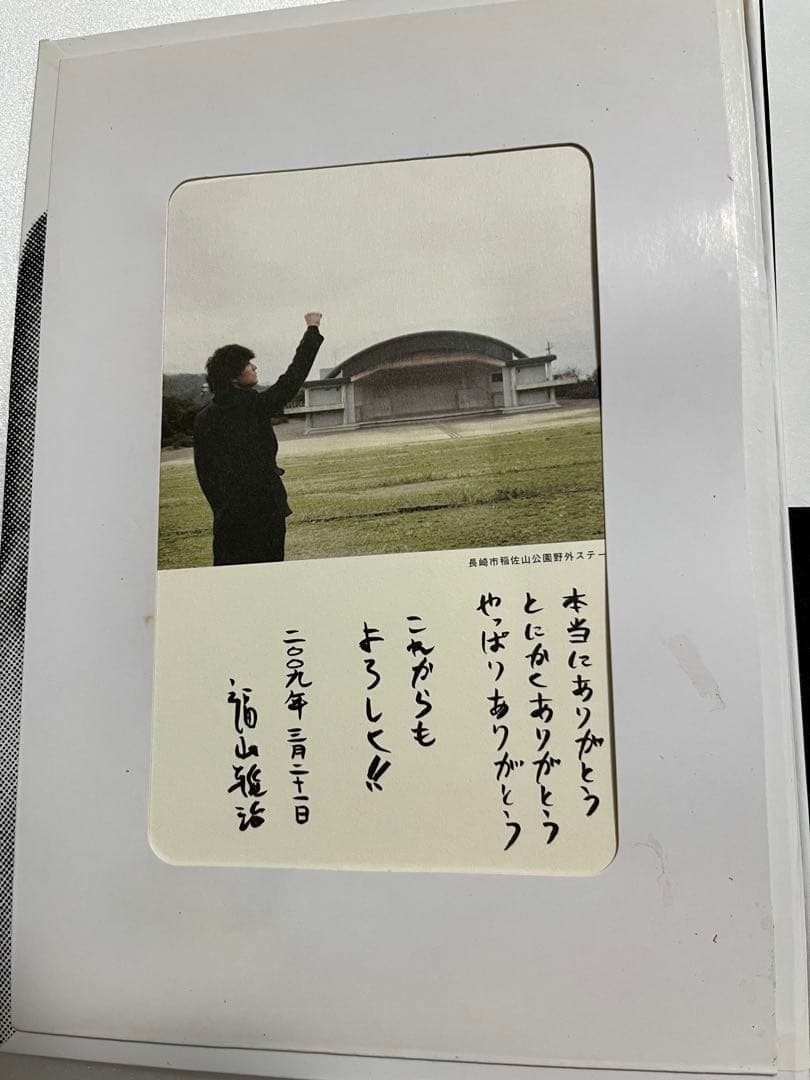 長崎市稲佐山公園野外ステー
本当にありがとう
とにかくありがとう
やっぱりありがとう
これからも
よろしく!!
二〇〇九年 三月二十一日
福山雅治